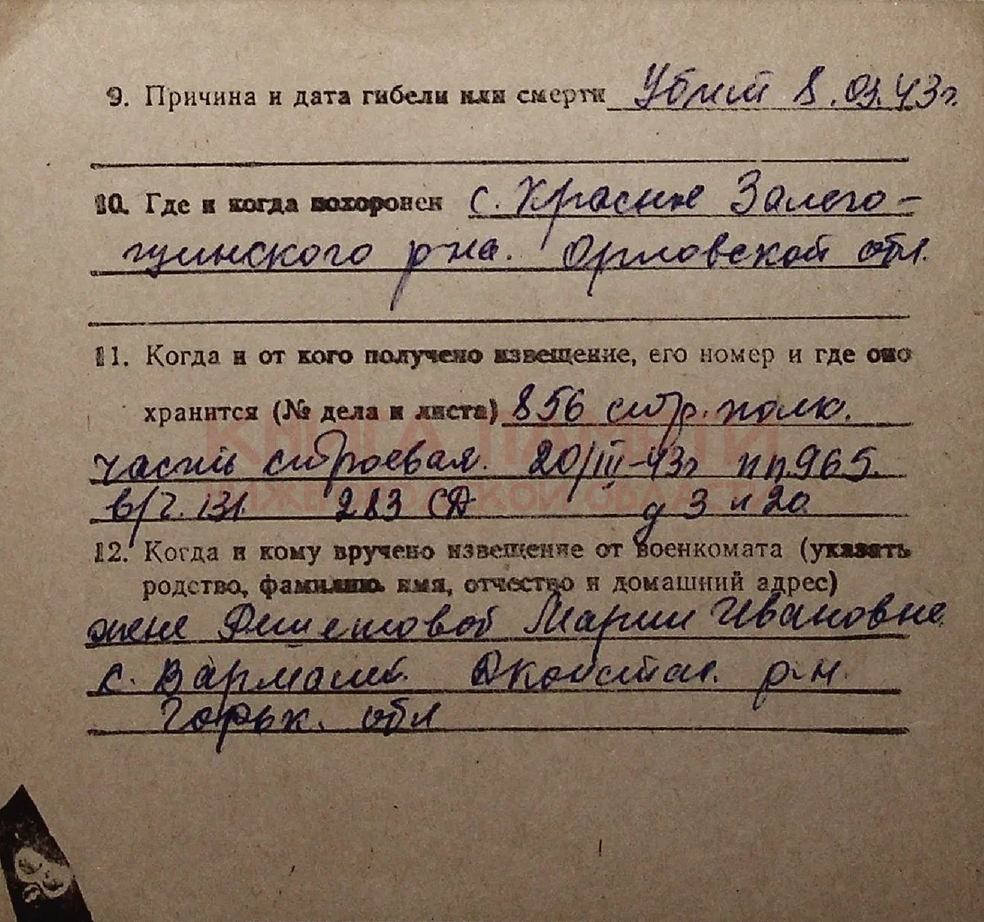 9. Причина и дата гибели или смерти Убит 8.03.43г.
10. Где и когда похоронен с. Красное Залего-
щинского р-на. Орловской обл.
11. Когда и от кого получено извещение, его номер и где оно
хранится (№ дела и листа) 856 стр. полк.
часть строевая. 20/III-43г пп.965.
в/г. 131 283 СД д 3 л 20
КНИГА ПАМЯТИ
НИЖЕГОРОДСКОЙ ОБЛАСТИ
12. Когда и кому вручено извещение от военкомата (указать
родство, фамилию, имя, отчество и домашний адрес)
жене Марии Ивановне
с. Вармалей. Дконстан. р-н.
Горьк. обл